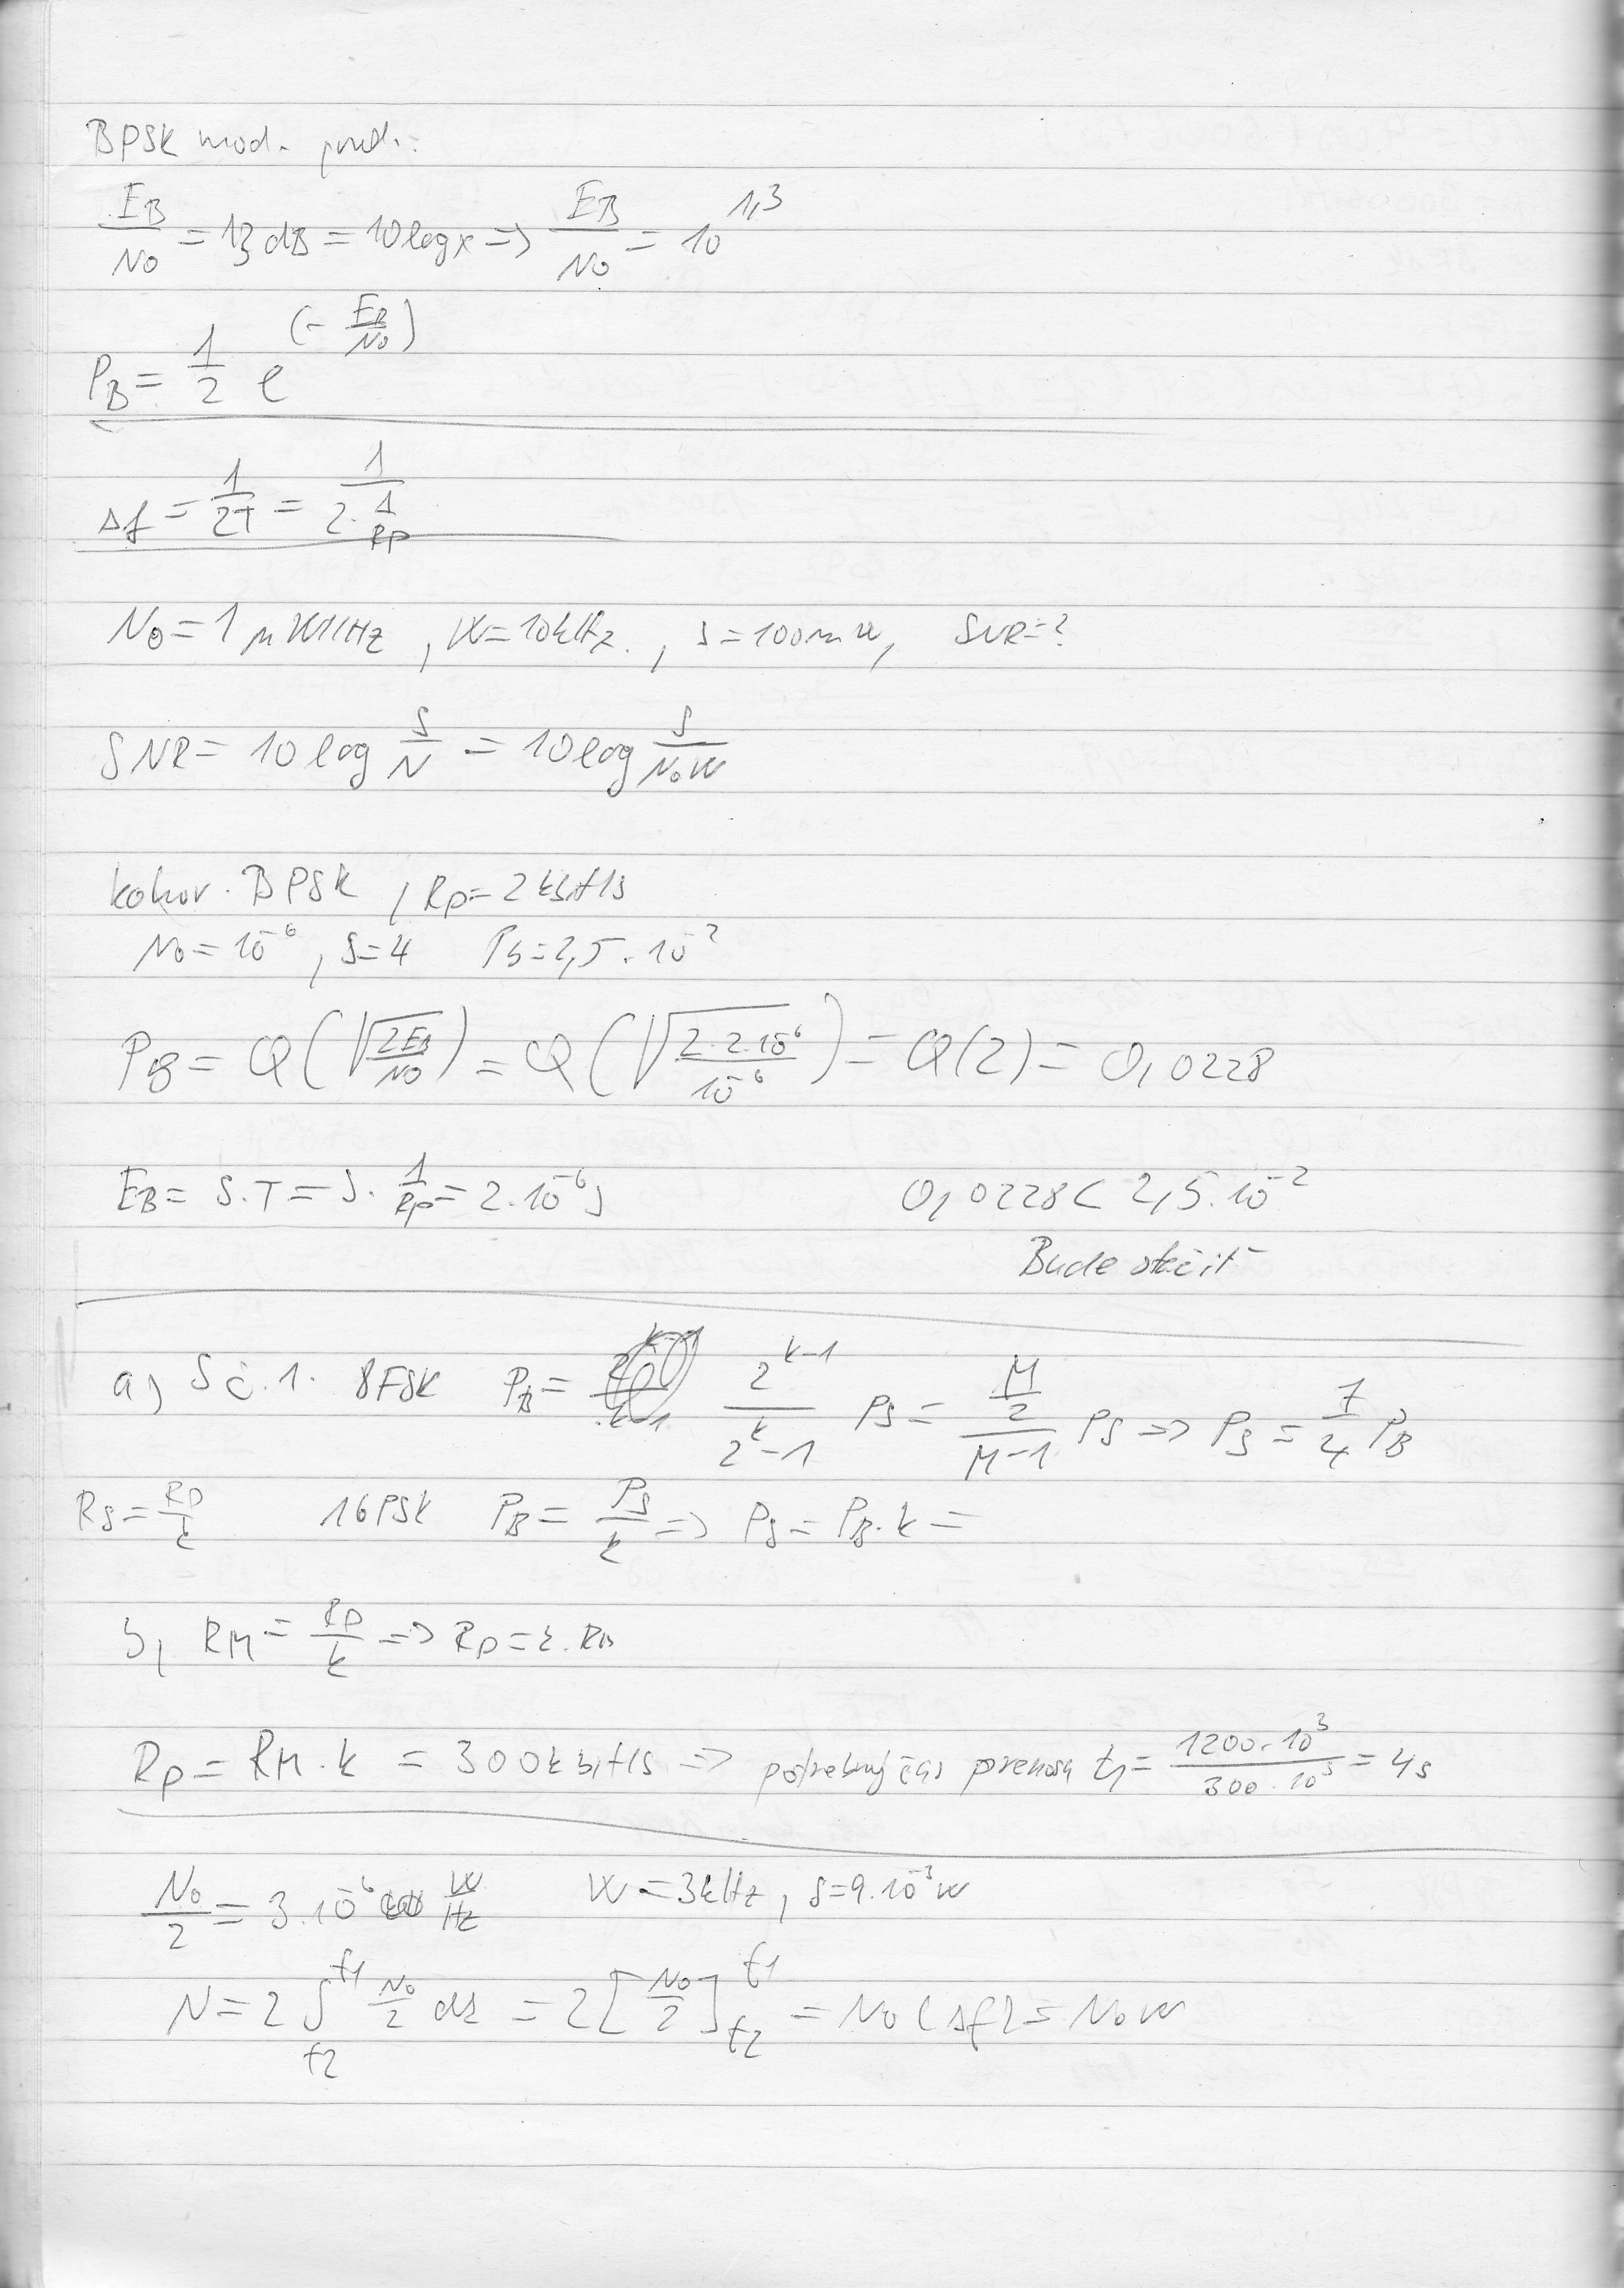 BPSK mod.
E_B/N_0 = 13 dB = 10 log x => E_B/N_0 = 10^1,3
P_B = 1/2 e^(- E_B/N_0)
Δf = 1/2T = 1/(2 · 1/Rp)
N_0 = 1 μW/Hz, W = 10kHz, S = 100mW, SNR = ?
SNR = 10 log S/N = 10 log S/(N_0 W)
koher. BPSK, Rp = 2 kbit/s
N_0 = 10^-6, S = 4 P_B = 2,5 · 10^-2
P_B = Q(√(2E_B/N_0)) = Q(√(2 · 2 · 10^-6/10^-6)) = Q(2) = 0,0228
E_B = S.T = S · 1/Rp = 2 · 10^-6 J 0,0228 < 2,5 · 10^-2
Bude stačiť
a) S č. 1. 8FSK P_B = 2^(k-1)/(2^k - 1) P_S = (M/2)/(M-1) P_S => P_S = 7/4 P_B
R_S = Rp/k 16PSK P_B = P_S/k => P_S = P_B · k =
b, R_M = Rp/k => Rp = k · R_M
Rp = R_M · k = 300 kbit/s => potrebný čas prenosu t_1 = 1200 · 10^3/300 · 10^3 = 4s
N_0/2 = 3 · 10^-6 W/Hz W = 3kHz, S = 9 · 10^-3 W
N = 2 ∫_f2^f1 N_0/2 df = 2 [N_0/2]_f2^f1 = N_0 (Δf) = N_0 W